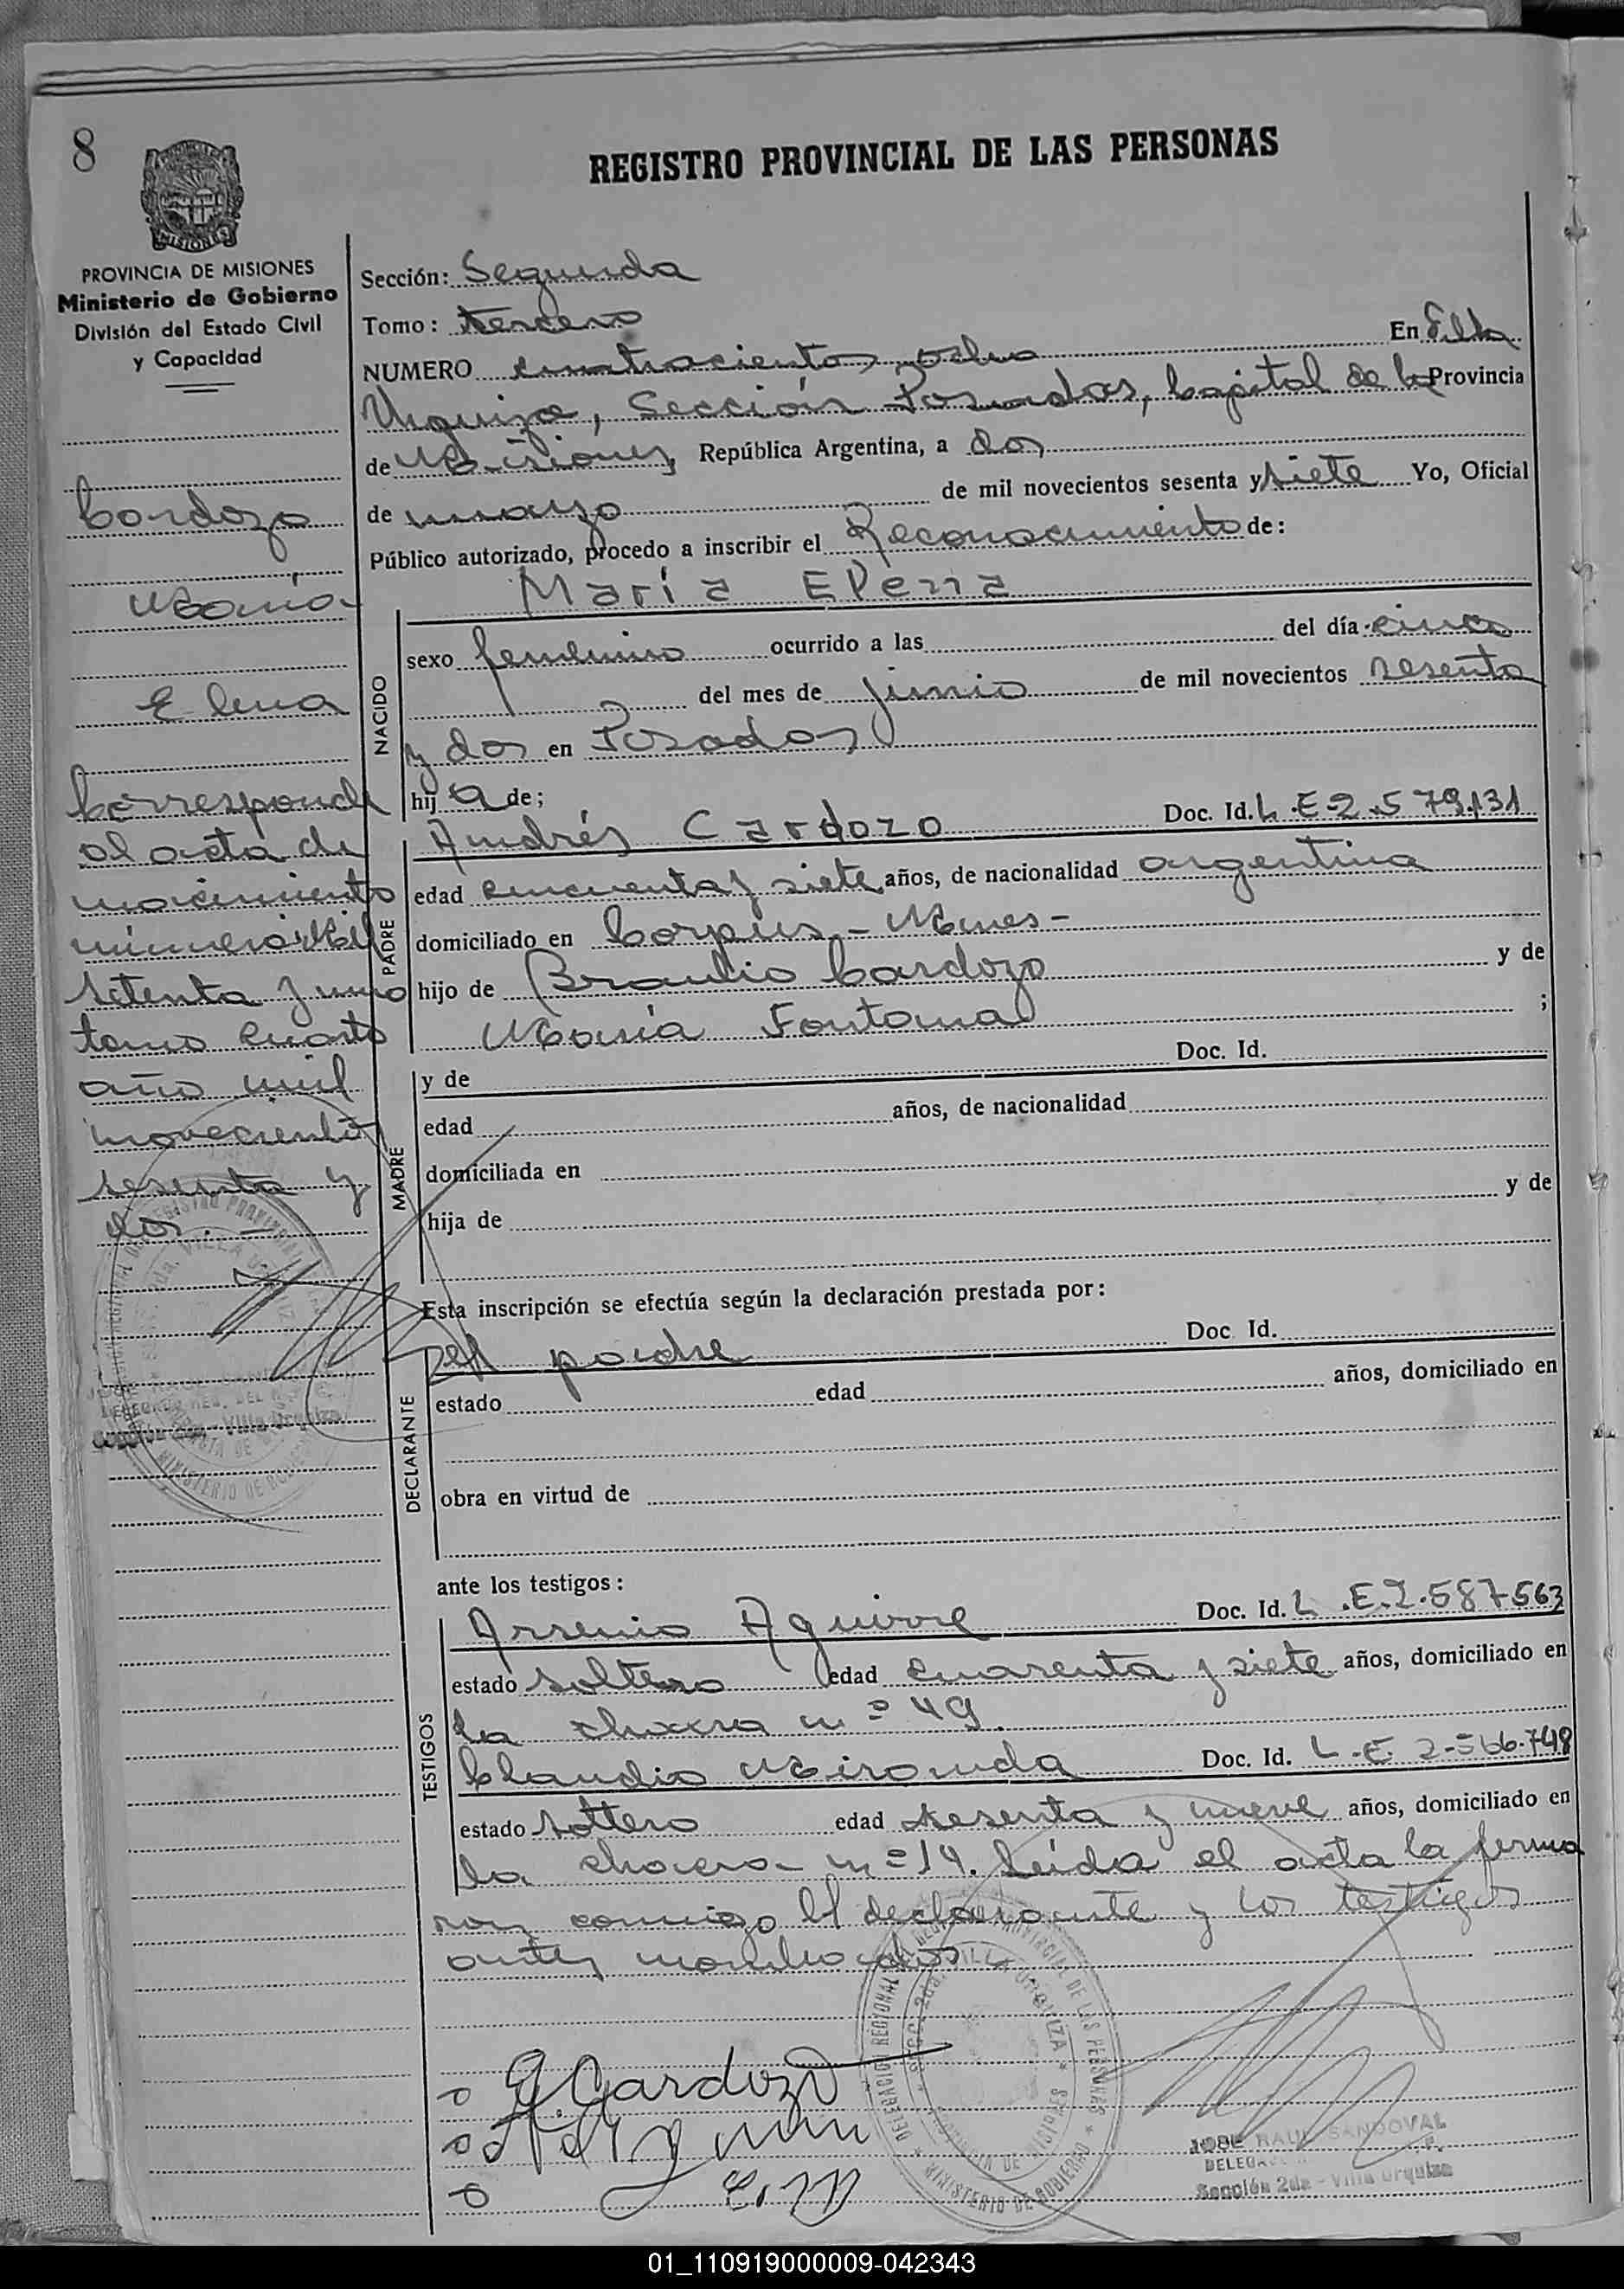 8
REGISTRO PROVINCIAL DE LAS PERSONAS
MISIONES
PROVINCIA DE MISIONES
Ministerio de Gobierno
División del Estado Civil
y Capacidad
Cardozo
María
Elena
Corresponde
al acta de
nacimiento
número Mil
setenta y uno
tomo cuarto
año mil
novecientos
sesenta y
dos.-
Sección: Segunda
Tomo: tercero
NUMERO cuatrocientos ocho En Villa
Urquiza, Sección Posadas, Capital de la Provincia
de Misiones, República Argentina, a dos
de mayo de mil novecientos sesenta y siete Yo, Oficial
Público autorizado, procedo a inscribir el Reconocimiento de:
NACIDO
María Elena
sexo femenino ocurrido a las del día cinco
del mes de junio de mil novecientos sesenta
y dos en Posadas
hija de;
PADRE
Andrés Cardozo Doc. Id. L.E 2.579.131
edad cincuenta y siete años, de nacionalidad argentina
domiciliado en Corpus - Mnes-
hijo de Braulio Cardozo y de
María Fontana ;
MADRE
y de Doc. Id.
edad años, de nacionalidad
domiciliada en
hija de y de
Esta inscripción se efectúa según la declaración prestada por:
DECLARANTE
el padre Doc. Id.
estado edad años, domiciliado en
obra en virtud de
ante los testigos:
TESTIGOS
Arsenio Aguirre Doc. Id. L.E.2.587.563
estado soltero edad cuarenta y siete años, domiciliado en
la chacra nº 49.
Claudio Miranda Doc. Id. L.E 2-566.748
estado soltero edad sesenta y nueve años, domiciliado en
la chacra nº 14. Leída el acta la firma
ron conmigo el declarante y los testigos
antes nombrados
DELEGACION REGIONAL DEL REGISTRO PROVINCIAL DE LAS PERSONAS
SECC. 2da. VILLA URQUIZA
PROVINCIA DE MISIONES
MINISTERIO DE GOBIERNO
Cardozo
JOSE RAUL SANDOVAL
Sección 2da - Villa Urquiza
01_110919000009-042343